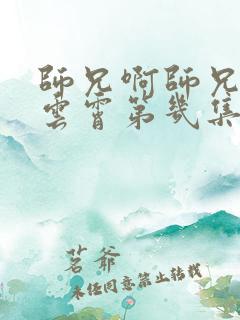 師兄啊師兄
雲霄第幾集
茗爺
未經同意禁止轉載